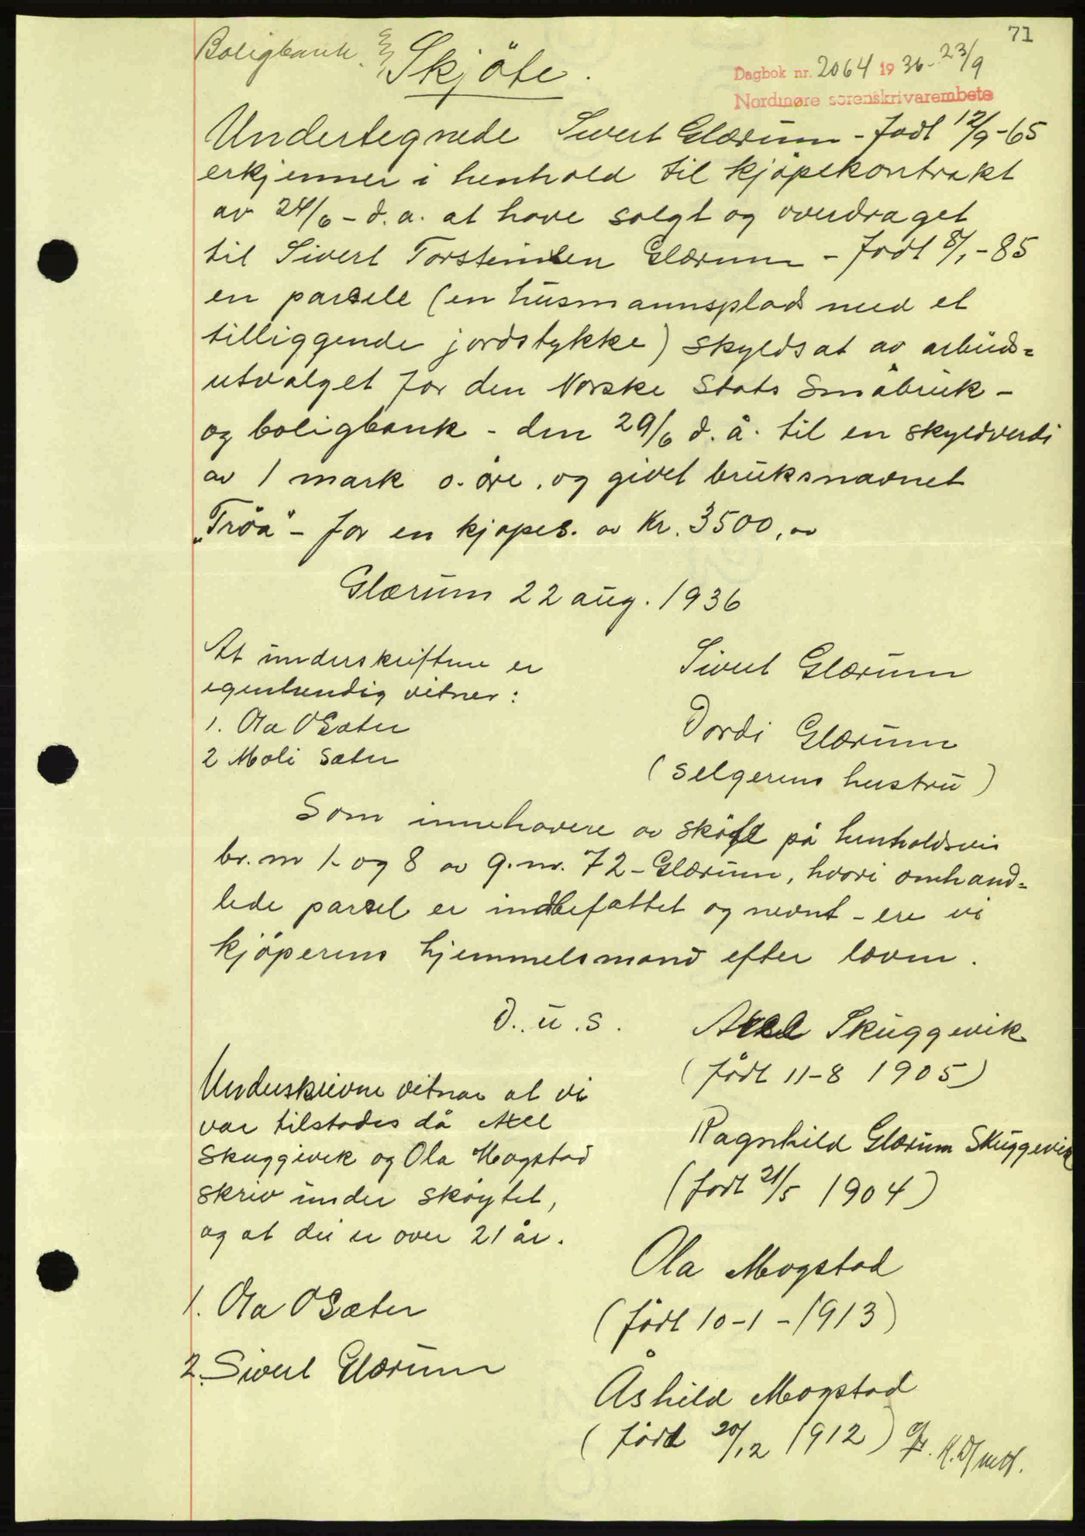 71
Boligbank.
Skjöte.
Dagbok nr. 2064 1936 - 23/9
Nordmøre sorenskrivarembete
Undertegnede Sivert Glærum - født 12/9-65
erkjenner i henhold til kjøpekontrakt
av 24/6 - d.a. at have solgt og overdraget
til Sivert Torsteinsen Glærum - født 8/1-85
en parsele (en husmannsplads med et
tilliggende jordstykke) skyldsat av arbeids=
utvalget for den Norske Stats Småbruk -
og boligbank - den 29/6 d.å. til en skyldverdi
av 1 mark o. øre. og givet bruksnavnet
"Trøa" - for en kjøpes. av Kr. 3500,00
Glærum 22 aug. 1936
At underskriftene er
egenhendig vitner:
1. Ola O Sæter
2 Moli Sæter
Sivert Glærum
Dordi Glærum
(selgerens hustru)
Som innehavere av skøfte på henholdsvis
br. nr 1 og 8 av g.nr. 72 - Glærum, hvori omhand=
lede parsel er indbefattet og nevnt - ere vi
kjøperens hjemmelsmand efter loven.
D.u.s.
Axel Skuggevik
(født 11-8 1905)
Ragnhild Glærum Skuggevik
(født 21/5 1904)
Ola Mogstad
(født 10-1-1913)
Åshild Mogstad
(født 20/12 1912)
Underskrivne vitnar at vi
var tilstades då Axel
Skuggevik og Ola Mogstad
skriv under skøytet,
og at dei er over 21 år.
1. Ola O Sæter
2. Sivert Glærum